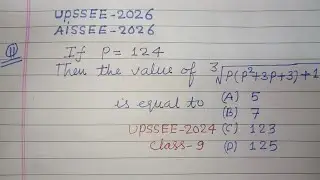 UPSSEE-2026
AISSEE-2026
11 If P = 124
Then the value of ∛P(P²+3P+3)+1
is equal to (A) 5
(B) 7
UPSSEE-2024 (C) 123
Class-9 (D) 125